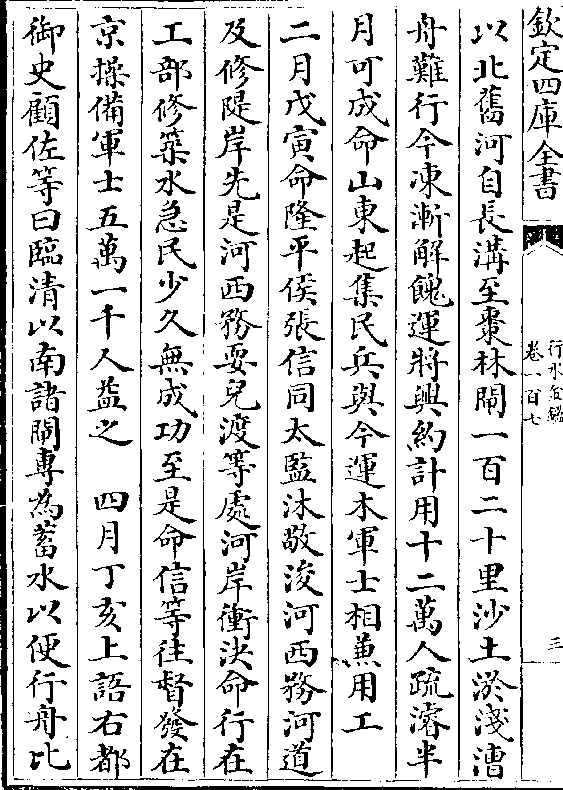 欽定四庫全書
行水金鑑
卷一百七
三
以北舊河自長溝至棗林閘一百二十里沙土淤淺漕
舟難行今凍漸解餽運將興約計用十二萬人疏濬半
月可成命山東起集民兵與今運木軍士相兼用工
二月戊寅命隆平侯張信同太監沐敬浚河西務河道
及修隄岸先是河西務耍兒渡等處河岸衝決命行在
工部修築水急民少久無成功至是命信等往督發在
京操備軍士五萬一千人益之 四月丁亥上語右都
御史顧佐等曰臨清以南諸閘専為蓄水以便行舟比